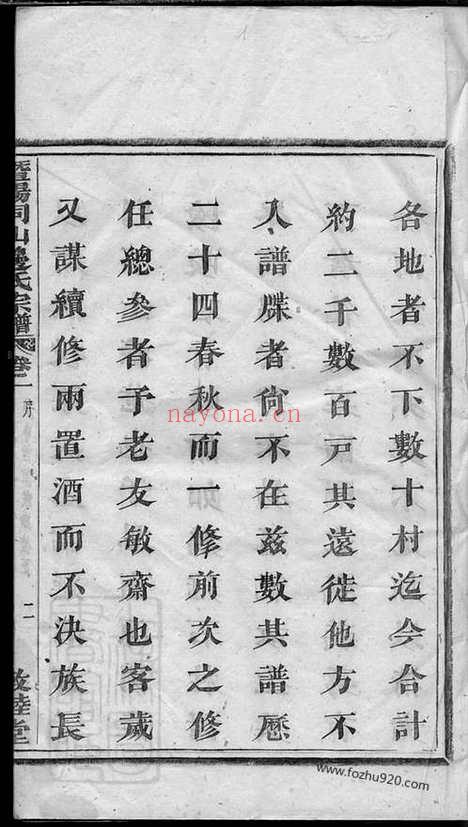 各地者不下數十村迄今合計
約二千數百戸其遠徙他方不
入譜牒者尙不在兹數其譜歷
二十四春秋而一修前次之修
任總參者予老友敏齋也客歲
又謀續修兩置酒而不決族長
暨陽同山邊氏宗譜 卷一 序 二 敦睦堂
nayona.cn
www.fozhu920.com